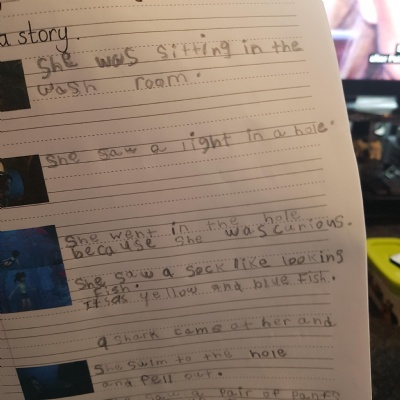 a story.
She was sitting in the
wash room.
She saw a light in a hole.
She went in the hole
because she was curious.
She saw a sock like looking
fish.
It was yellow and blue fish.
a shark came at her and
She swim to the hole
and fell out.
saw a pair of pants